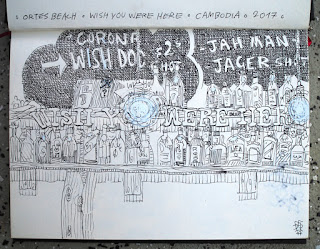 ○ ORTES BEACH ○ WISH YOU WERE HERE ○ CAMBODIA ○ 2017 ○
CORONA
WISH DOC
2$
SHOT
JAH MAN
JÄGER SHOT
WISH YOU WERE HERE